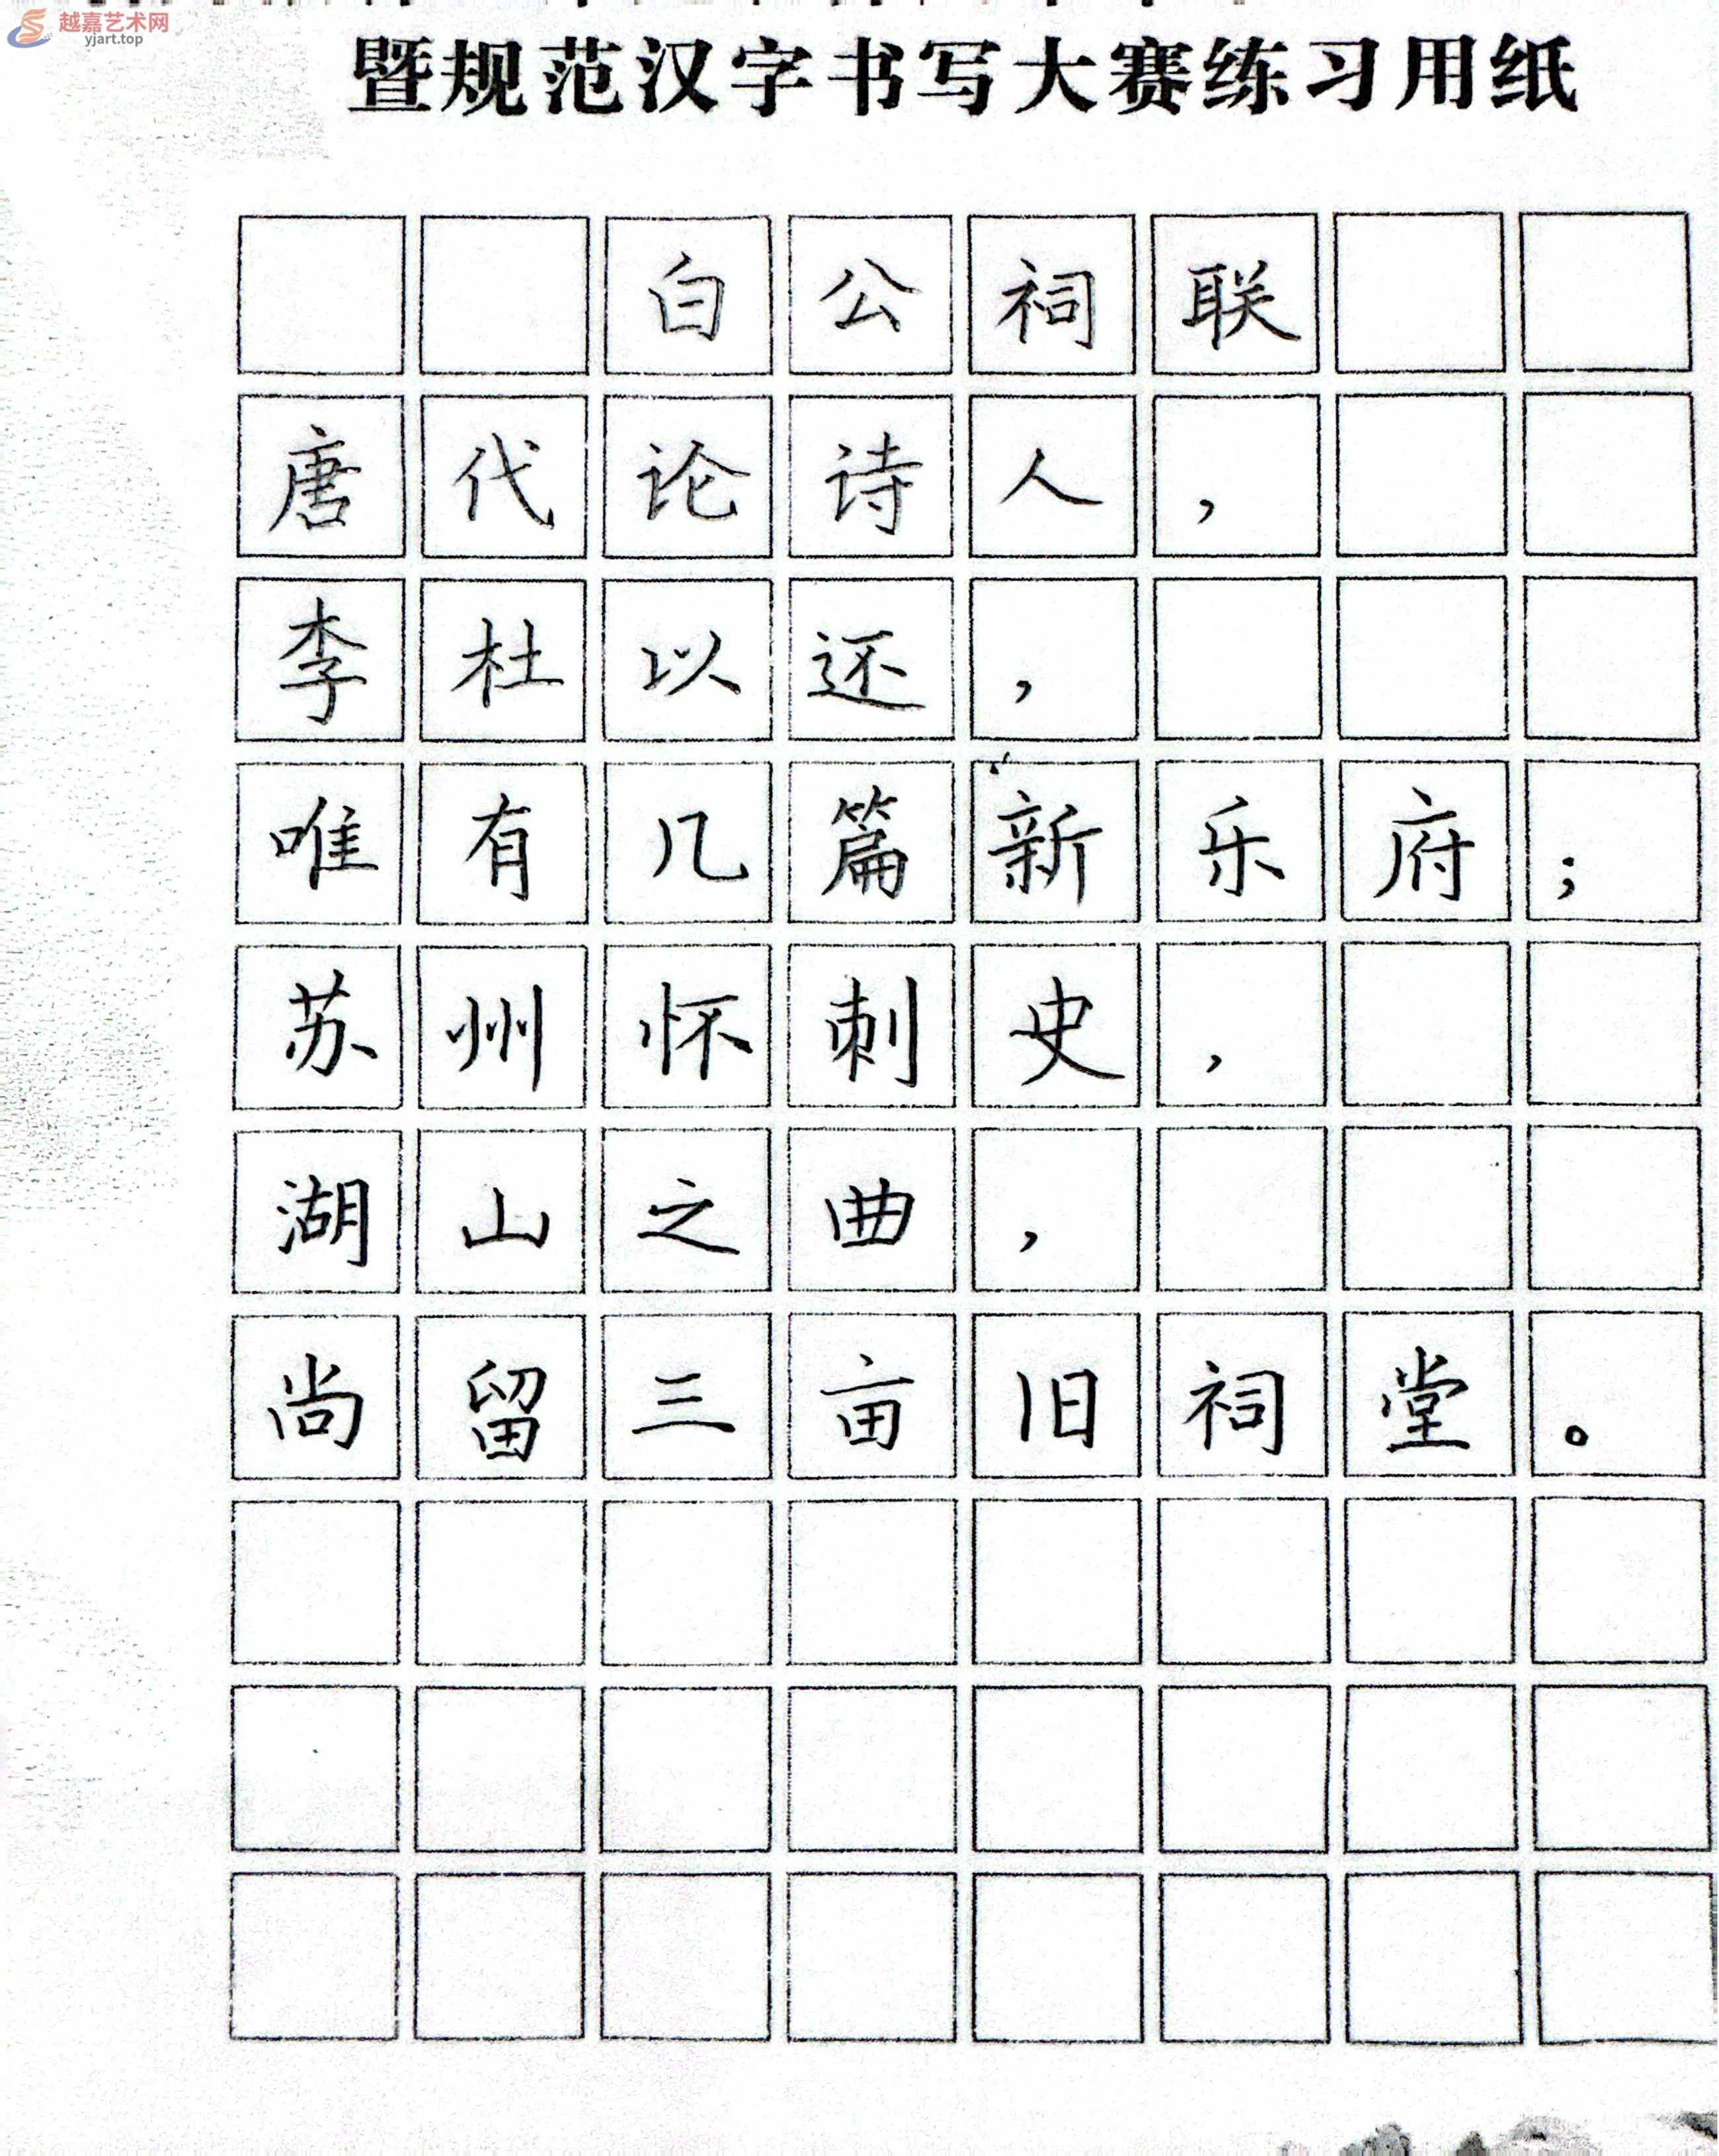 越嘉艺术网
yjart.top
暨规范汉字书写大赛练习用纸
白公祠联
唐代论诗人，
李杜以还，
唯有几篇新乐府；
苏州怀刺史，
湖山之曲，
尚留三亩旧祠堂。